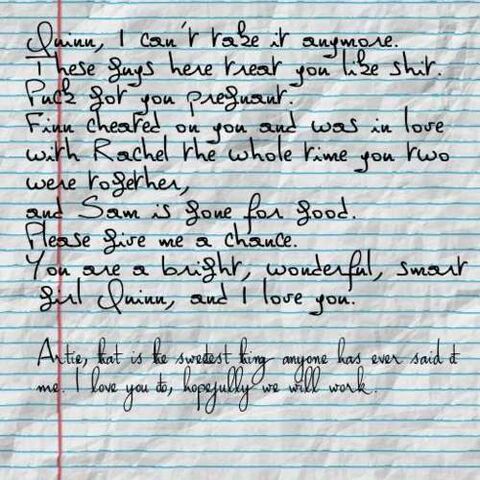 Quinn, I can't take it anymore.
These guys here treat you like shit.
Puck got you pregnant.
Finn cheated on you and was in love
with Rachel the whole time you two
were together,
and Sam is gone for good.
Please give me a chance.
You are a bright, wonderful, smart
girl Quinn, and I love you.
Artie, that is the sweetest thing anyone has ever said to
me. I love you to, hopefully we will work..